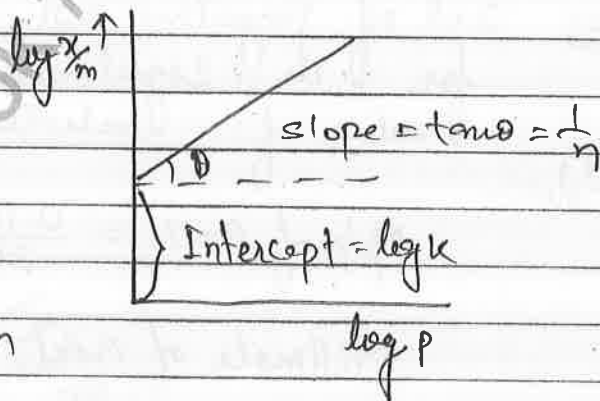 log x/m ↑
slope = tanθ = 1/n
θ
Intercept = log k
log p
n